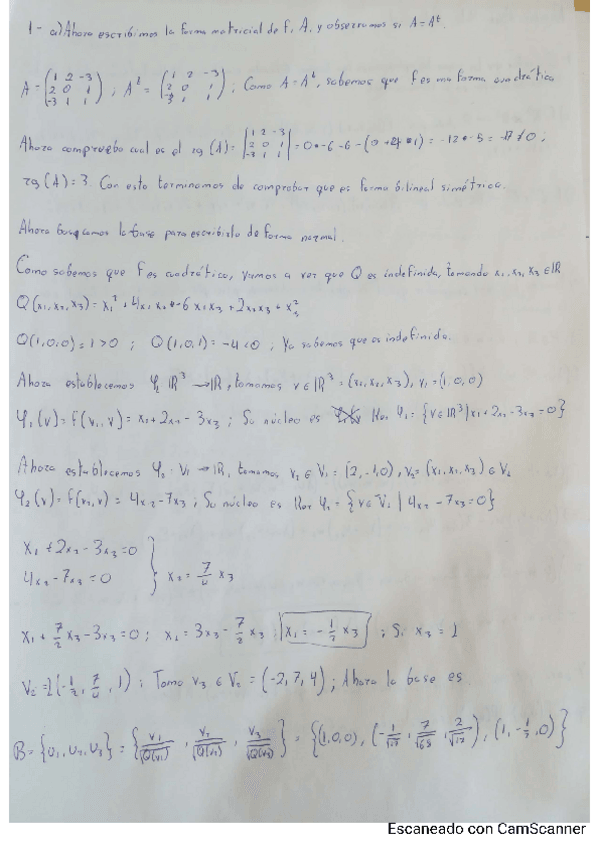 1- a) Ahora escribimos la forma matricial de f, A, y observamos si A=Aᵗ.
A = (1 2 -3; 2 0 1; -3 1 1) ; Aᵗ = (1 2 -3; 2 0 1; -3 1 1) ; Como A=Aᵗ, sabemos que f es una forma cuadrática
Ahora compruebo cual es el rg(A) = |1 2 -3; 2 0 1; -3 1 1| = 0-6-6-(0+4+1) = -12-5 = -17≠0 ;
rg(A)=3. Con esto terminamos de comprobar que es forma bilineal simétrica.
Ahora buscamos la base para escribirlo de forma normal.
Como sabemos que f es cuadrática, vamos a ver que Q es indefinida, tomando x₁, x₂, x₃ ∈ IR
Q(x₁,x₂,x₃) = x₁² + 4x₁x₂ - 6x₁x₃ + 2x₂x₃ + x₃²
Q(1,0,0)=1>0 ; Q(1,0,1)=-4<0 ; Ya sabemos que es indefinida.
Ahora establecemos φ₁ IR³ → IR, tomamos v∈IR³=(x₁,x₂,x₃), v₁=(1,0,0)
φ₁(v)=f(v₁,v)= x₁+2x₂-3x₃ ; Su núcleo es Ker φ₁ = {v∈IR³ | x₁+2x₂-3x₃=0}
Ahora establecemos φ₂: V₁ → IR, tomamos v₂ ∈ V₁ = (2,-1,0), v₃=(x₁,x₂,x₃) ∈ V₂
φ₂(v)=f(v₂,v) = 4x₂-7x₃ ; Su núcleo es Ker φ₂ = {v∈V₁ | 4x₂-7x₃=0}
x₁+2x₂-3x₃=0
4x₂-7x₃=0 } x₂ = 7/4 x₃
x₁ + 7/2 x₃ - 3x₃ = 0 ; x₁ = 3x₃ - 7/2 x₃ ; x₁ = -1/2 x₃ ; Si x₃ = 1
V₂=L(-1/2, 7/4, 1) ; Tomo v₃ ∈ V₂ = (-2,7,4) ; Ahora la base es
B = {u₁,u₂,u₃} = {v₁/√Q(v₁), v₂/√Q(v₂), v₃/√Q(v₃)} = {(1,0,0), (-1/√17, 7/√68, 2/√17), (1,-1/2,0)}
Escaneado con CamScanner